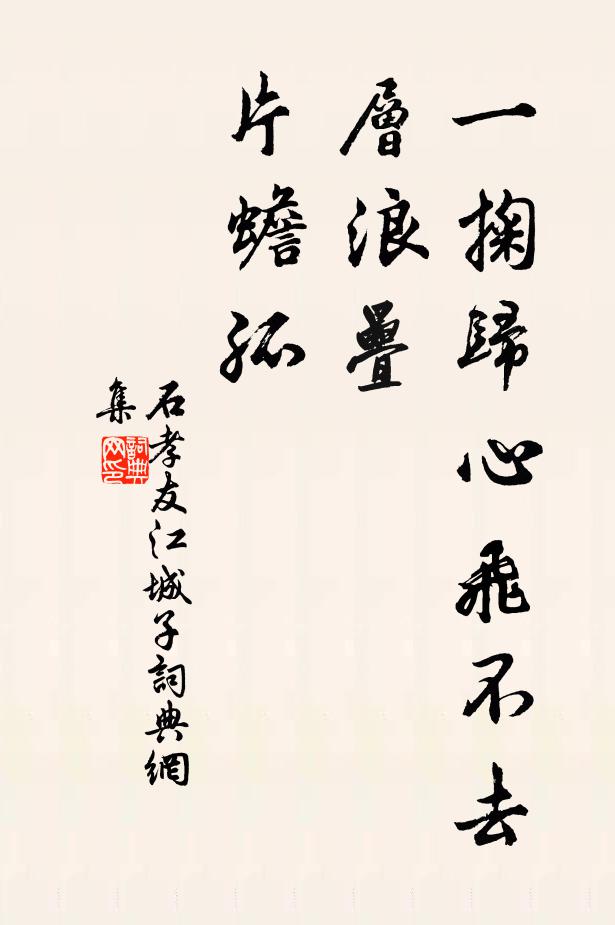 一掬歸心飛不去
層浪疊
片蟾孤
石孝友江城子詞典網
集
詞典网印